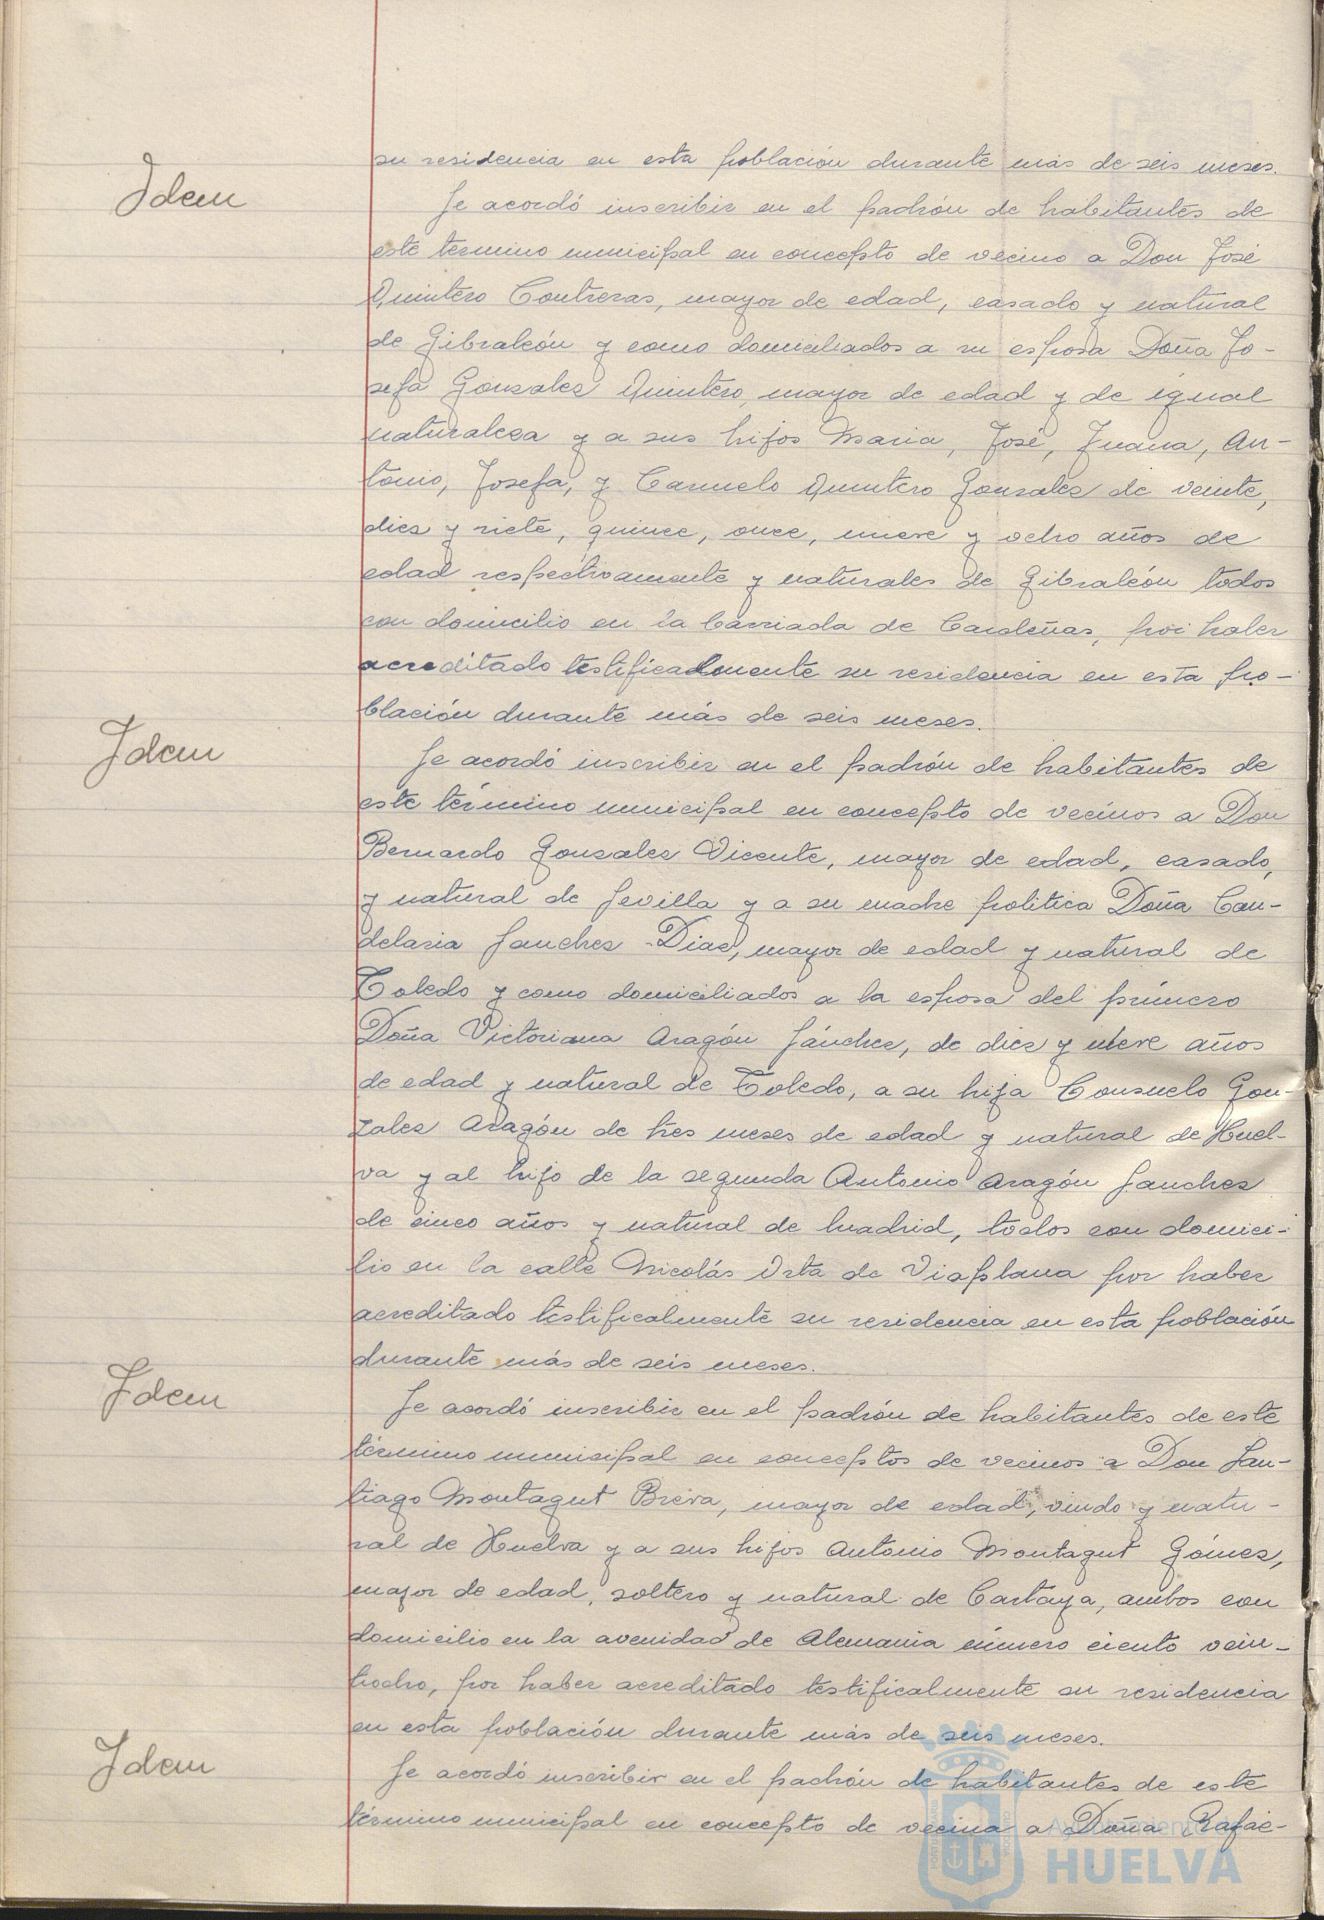 su residencia en esta población durante más de seis meses.
Idem
Se acordó inscribir en el padrón de habitantes de
este termino municipal en concepto de vecino a Don José
Quintero Contreras, mayor de edad, casado y natural
de Gibraleón y como domiciliados a su esposa Doña Jo-
sefa Gonzalez Quintero, mayor de edad y de igual
naturaleza y a sus hijos Maria, José, Juana, An-
tonio, Josefa, y Carmelo Quintero Gonzalez de veinte,
diez y siete, quince, once, nueve y ocho años de
edad respectivamente y naturales de Gibraleón todos
con domicilio en la barriada de Cardeñas, por haber
acreditado testificalmente su residencia en esta po-
blación durante más de seis meses.
Idem
Se acordó inscribir en el padrón de habitantes de
este término municipal en concepto de vecinos a Don
Bernardo Gonzalez Vicente, mayor de edad, casado,
y natural de Sevilla y a su madre politica Doña Can-
delaria Sanchez Diaz, mayor de edad y natural de
Toledo y como domiciliados a la esposa del primero
Doña Victoriana Aragón Sánchez, de diez y nueve años
de edad y natural de Toledo, a su hija Consuelo Gon-
zalez Aragón de tres meses de edad y natural de Huel-
va y al hijo de la segunda Antonio Aragón Sanchez
de cinco años y natural de Madrid, todos con domici-
lio en la calle Nicolás Orta de Viaplana por haber
acreditado testificalmente su residencia en esta población
durante más de seis meses.
Idem
Se acordó inscribir en el padrón de habitantes de este
término municipal en conceptos de vecinos a Don San-
tiago Montagut Breva, mayor de edad, viudo y natu-
ral de Huelva y a sus hijos Antonio Montagut Gómez,
mayor de edad, soltero y natural de Cartaya, ambos con
domicilio en la avenidad de Alemania número ciento vein-
tiocho, por haber acreditado testificalmente su residencia
en esta población durante más de seis meses.
Idem
Se acordó inscribir en el padrón de habitantes de este
término municipal en concepto de vecina a Doña Rafae-
Ayuntamiento de
HUELVA